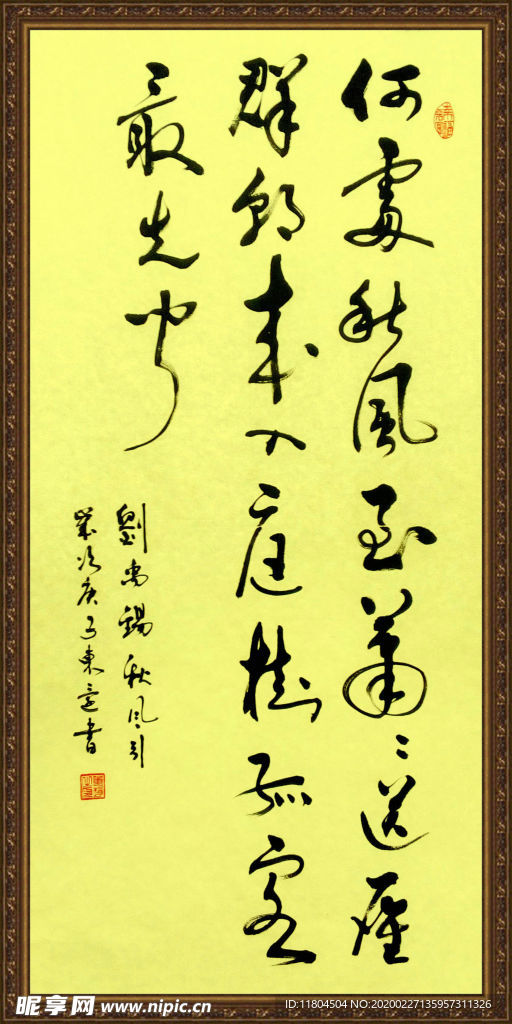 何處秋風至蕭〻送雁
群朝來入庭樹孤客
最先聞
劉禹錫秋風引
歲次庚子東意書
昵享网 www.nipic.cn
ID:11804504 NO:20200227135957311326